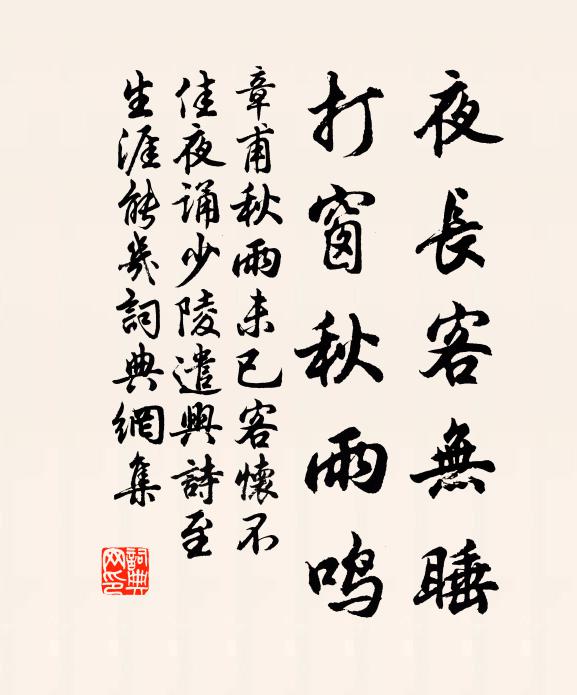 夜長客無睡
打窗秋雨鳴
章甫秋雨未已客懷不
佳夜誦少陵遣興詩至
生涯能幾詞典網集
詞典
网印